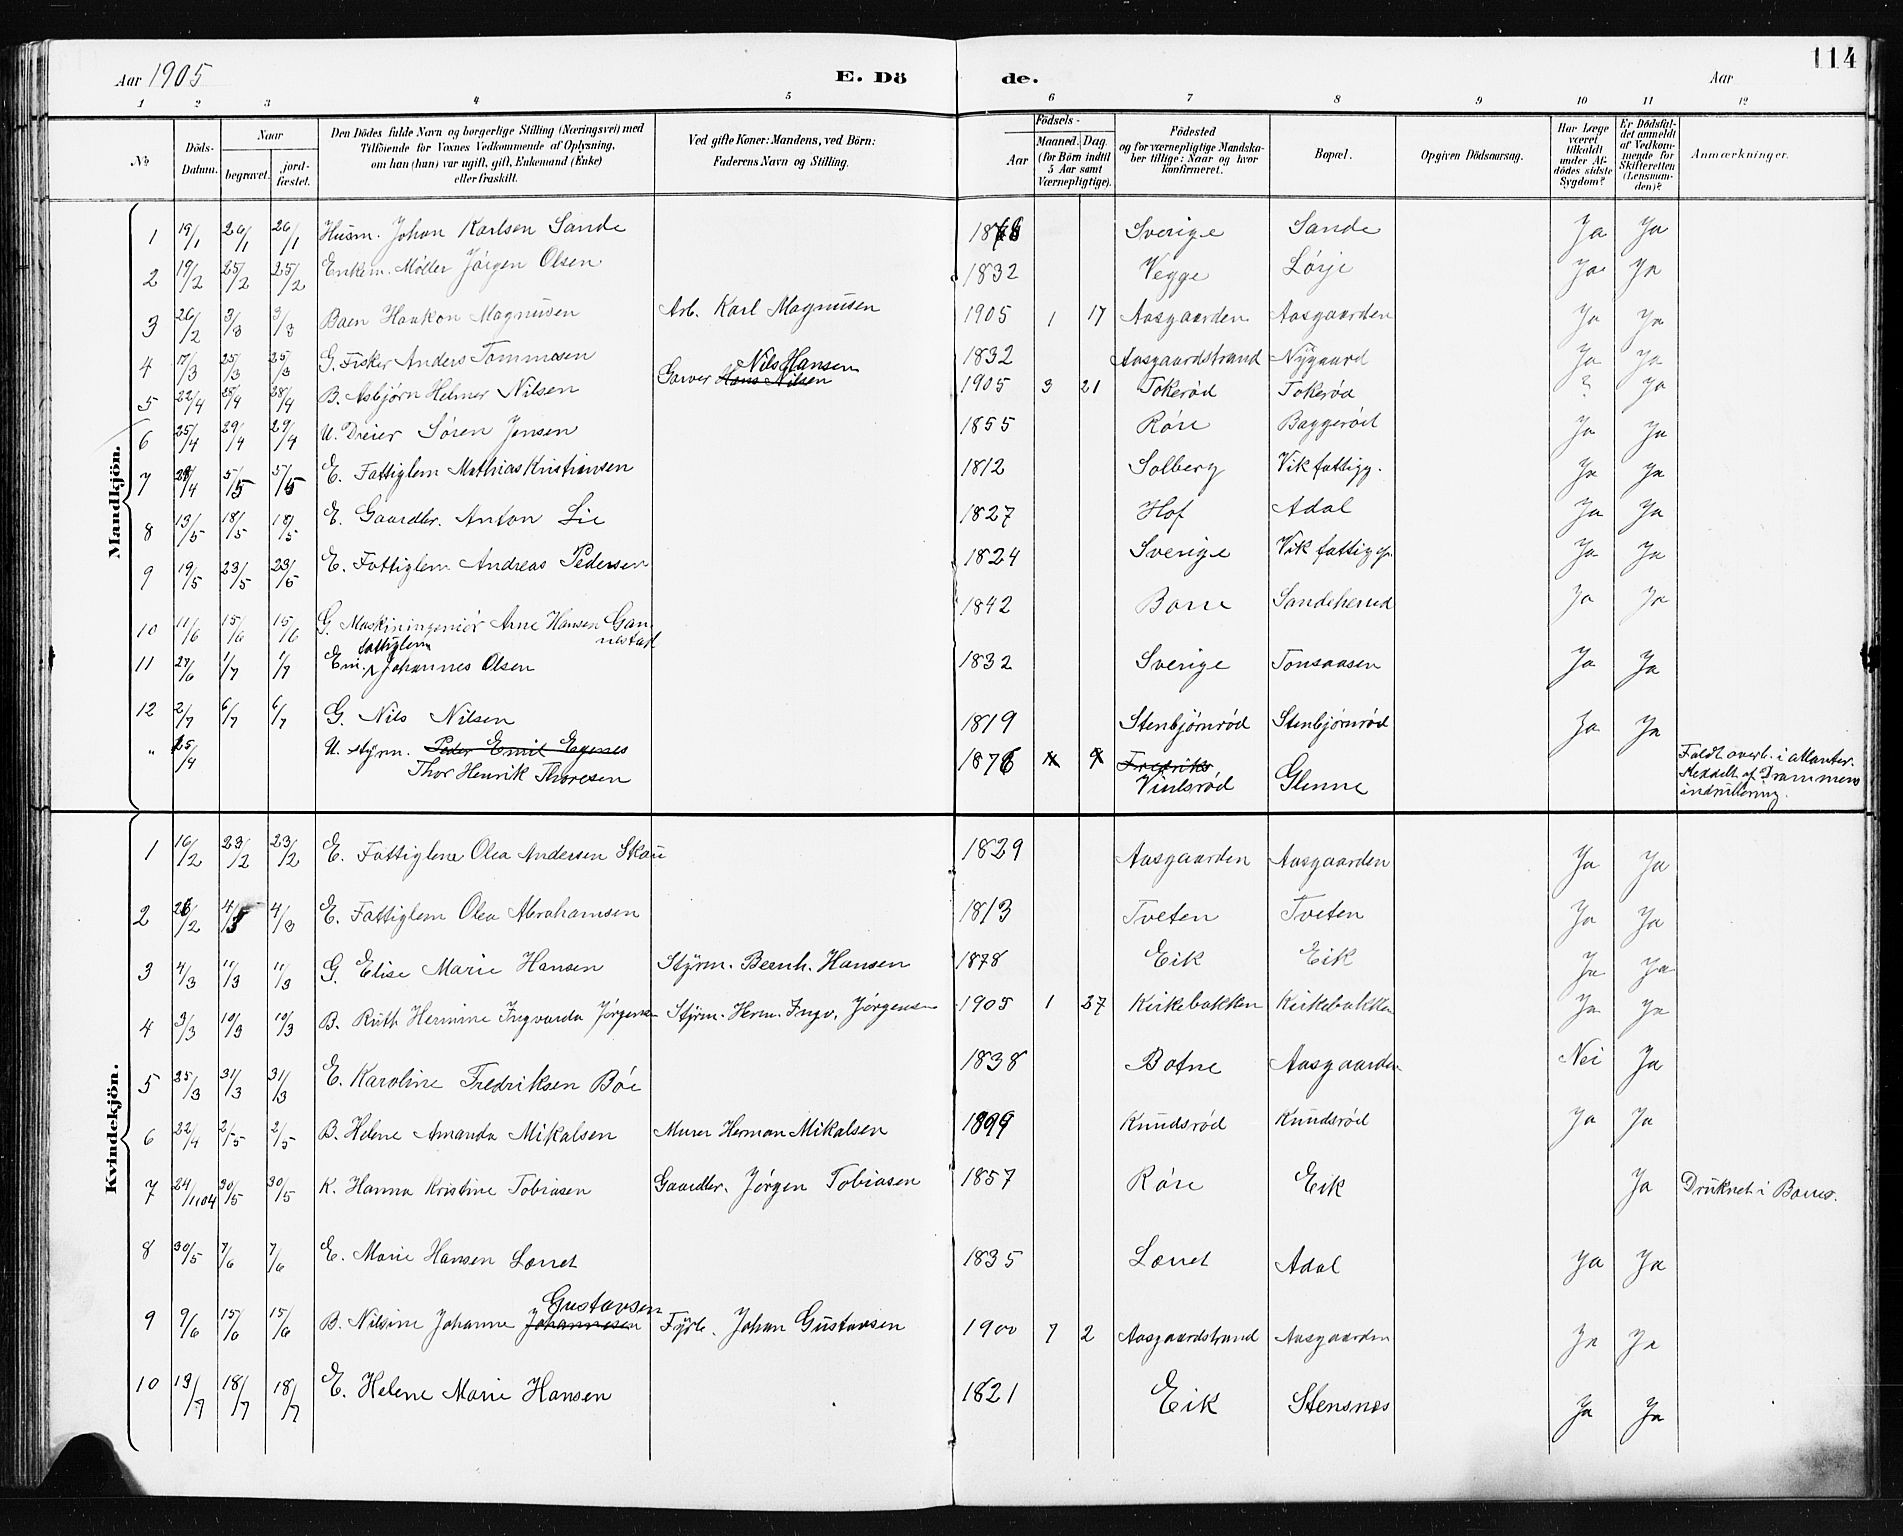 114
Aar 1905
E. Dö de.
Aar
1 2 3 4 5 6 7 8 9 10 11 12
No
Döds-Datum.
Naar
begravet.
jord-fæstet.
Den Dödes fulde Navn og borgerlige Stilling (Næringsvei) med
Tilföiende for Voxnes Vedkommende af Oplysning,
om han (hun) var ugift, gift, Enkemand (Enke)
eller fraskilt.
Ved gifte Koner: Mandens, ved Börn:
Faderens Navn og Stilling.
Födsels-
Aar
Maaned. Dag.
(for Börn indtil
5 Aar samt
Værnepligtige).
Födested
og for værnepligtige Mandska-
ber tillige: Naar og hvor
konfirmeret.
Bopæl.
Opgiven Dödsaarsag.
Har Læge
været
tilkaldt
under Af-
dödes sidste
Sygdom?
Er Dödsfal-
det anmeldt
af Vedkom-
mende for
Skifteretten
(Lensman-
den)?
Anmærkninger.
Mandkjön.
1 19/1 26/1 26/1 Husm. Johan Karlsen Sande 1868 Sverige Sande Ja Ja
2 19/2 25/2 25/2 Enkem. Møller Jørgen Olsen 1832 Vegge Lørje Ja Ja
3 26/2 3/3 3/3 Barn Haakon Magnusen Arb. Karl Magnusen 1905 1 17 Aasgaarden Aasgaarden Ja Ja
4 17/3 25/3 25/3 G. Fisker Anders Tommesen 1832 Aasgaardstrand Nygaard Ja Ja
5 22/4 28/4 28/4 B. Asbjørn Helmer Nilsen Garver Hans Nilsen Nils Hansen 1905 3 21 Tokerød Tokerød ? Ja
6 25/4 29/4 29/4 U. Dreier Søren Jensen 1855 Røre Baggerød Ja Ja
7 29/4 5/5 5/5 E. Fattiglem Mathias Kristiansen 1812 Solberg Vik fattigg. Ja Ja
8 13/5 18/5 18/5 E. Gaardbr. Anton Lie 1827 Hof Adal Ja Ja
9 19/5 23/5 23/5 E. Fattiglem Andreas Pedersen 1824 Sverige Vik fattigg. Ja Ja
10 11/6 15/6 15/6 G. Maskiningeniør Arne Hansen Gannestad 1842 Borre Sandeherred Ja Ja
11 27/6 1/7 1/7 Em. fattiglem Johannes Olsen 1832 Sverige Tonsaasen Ja Ja
12 2/7 6/7 6/7 G. Nils Nilsen 1819 Stenbjørnrød Stenbjørnrød Ja Ja
" 25/4 U. styrm. Peder Emil Egenes 1876 4 9 Fredriks
Thor Henrik Thoresen Vintsrød Glenne
Faldt overb. i atlanter.
Meddelt af Drammens
indrullering.
Kvindekjön.
1 16/2 23/2 23/2 E. Fattiglem Olea Andersen Skau 1829 Aasgaarden Aasgaarden Ja Ja
2 26/2 4/3 4/3 E. Fattiglem Olea Abrahamsen 1813 Tveten Tveten Ja Ja
3 4/3 11/3 11/3 G. Elise Marie Hansen Styrm. Bernh. Hansen 1878 Eik Eik Ja Ja
4 3/3 10/3 10/3 B. Ruth Hermine Ingvarda Jørgensen Styrm. Herm. Ingv. Jørgensen 1905 1 27 Kirkebakken Kirkebakken Ja Ja
5 25/3 31/3 31/3 E. Karoline Fredriksen Bøe 1838 Botne Aasgaarden Nei Ja
6 22/4 2/5 2/5 B. Helene Amanda Mikalsen Murer Herman Mikalsen 1899 Knudsrød Knudsrød Ja Ja
7 24/11 04 30/5 30/5 K. Hanna Kristine Tobiasen Gaardbr. Jørgen Tobiasen 1857 Røre Eik Ja Druknet i Borres.
8 30/5 7/6 7/6 E. Marie Hansen Lørret 1835 Lørret Adal Ja Ja
9 9/6 15/6 15/6 B. Nilsine Johanne Johannesen Gustavsen Fyrb. Johan Gustavsen 1900 7 2 Aasgaardstrand Aasgaarden Ja Ja
10 13/7 18/7 18/7 E. Helene Marie Hansen 1821 Eik Stensnes Ja Ja